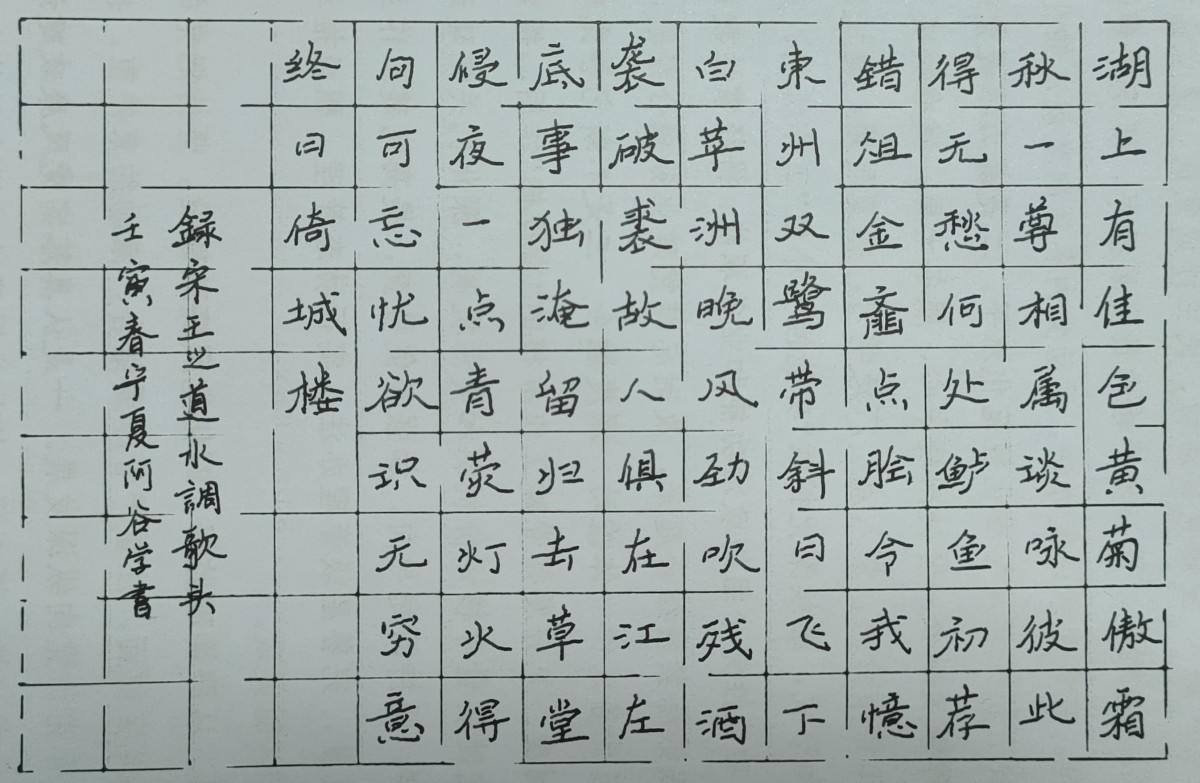 湖上有佳色黄菊傲霜
秋一尊相属谈咏彼此
得无愁何处鲈鱼初荐
错俎金虀点脍令我忆
东州双鹭带斜日飞下
白苹洲晚风劲吹残酒
袭破裘故人俱在江左
底事独淹留归去草堂
侵夜一点青荧灯火得
句可忘忧欲识无穷意
终日倚城楼
録宋王之道水調歌头
壬寅春宁夏阿谷学書